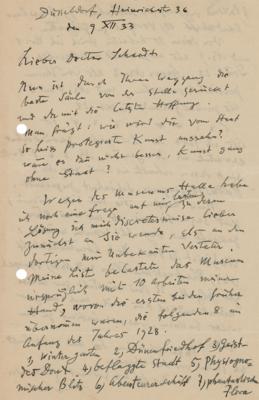 Düsseldorf, Heinrichstr 36
den 9 XII 33
Lieber Doctor Schardt
Nun ist durch Ihren Weggang die
beste Säule von der Stelle gerückt
und damit die letzte Hoffnung.
Man frägt: wie wird die vom Staat
so heiss protegierte Kunst aussehn?
wäre es da nicht besser, Kunst ganz
ohne Staat?
Wegen des Museums Halle habe
ich noch eine Frage mit zu deren
Lösung ich mich discreterweise lieber
zunächst an Sie wende, als an den
dortigen mir unbekannten Vertreter.
Meine Liste belastete das Museum
ursprünglich mit 10 Arbeiten meiner
Hand, wovon die ersten bei den früher
übernommen waren, die folgenden 8 im
Anfang des Jahres 1928.
1) Wintergarten 2) Dünenfriedhof 3) Geist-
4) beflaggte Stadt 5) Physiogno-
mischer Blitz 6) Abenteurerschiff 7) phantastische
Flora